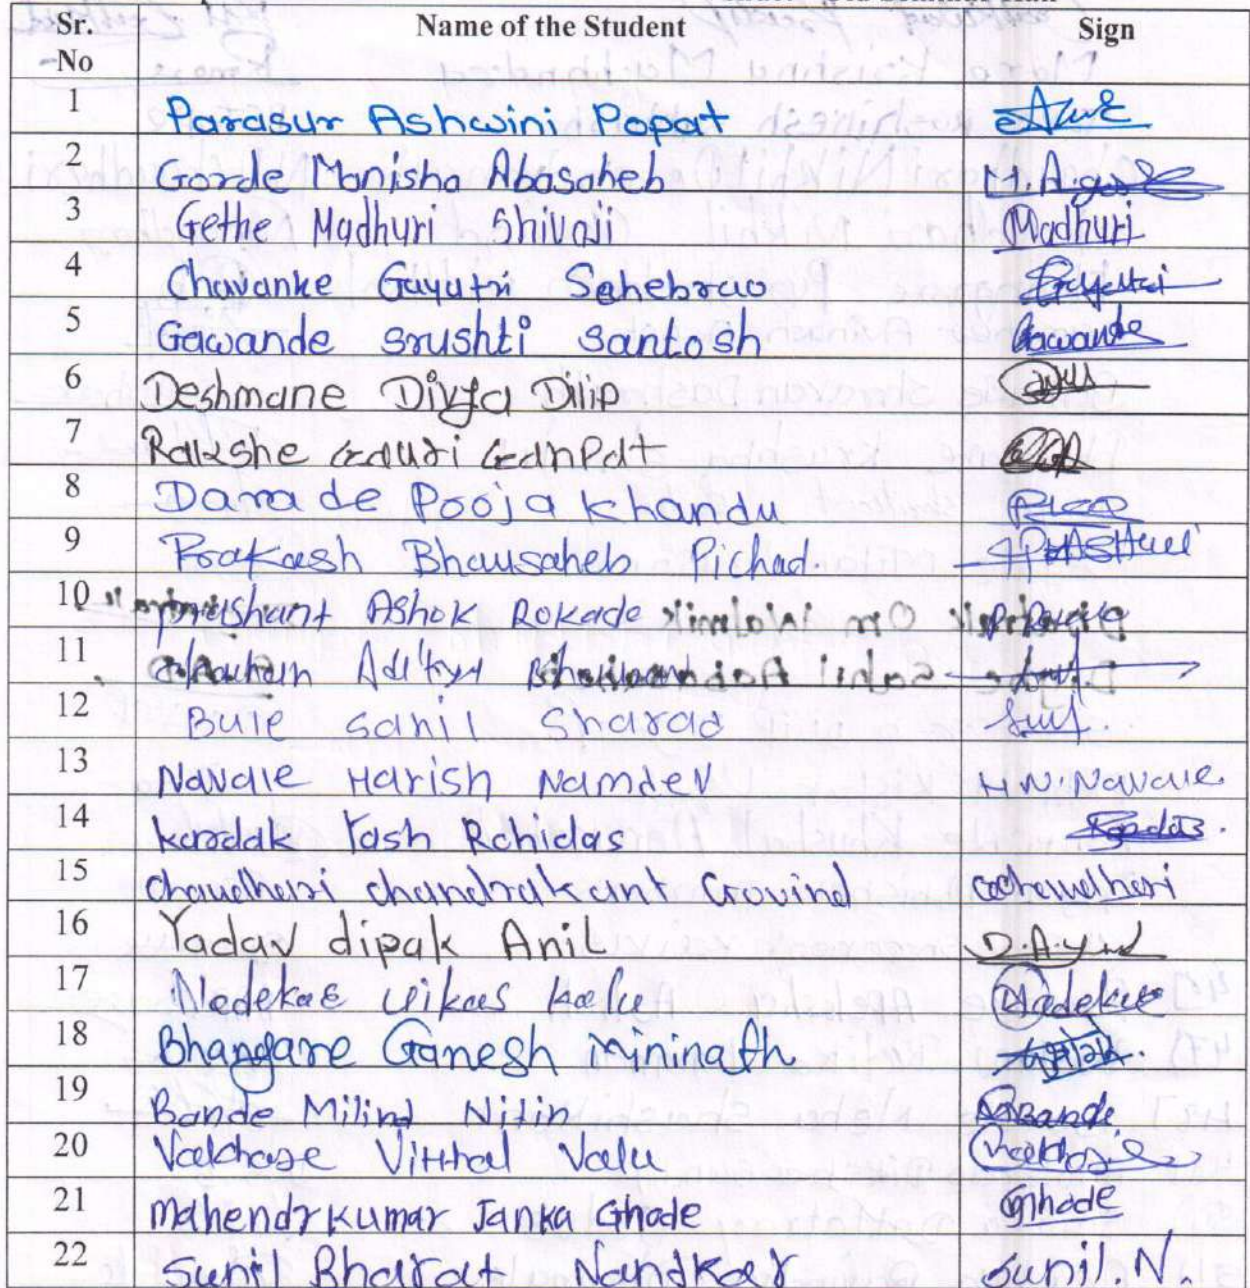 Sr. No Name of the Student Sign
1 Parasur Ashwini Popat
2 Gorde Manisha Abasaheb
3 Gethe Madhuri Shivaji Madhuri
4 Chavanke Gayatri Sahebrao Gayatri
5 Gawande Srushti Santosh Gawande
6 Deshmane Divya Dilip
7 Rakshe Gauri Ganpat
8 Darade Pooja Khandu
9 Prakash Bhausaheb Pichad
10 Prashant Ashok Rokade
11 Aditya
12 Bule Sahil Sharad
13 Navale Harish Namdev H.N.Navale.
14 Kardak Yash Rohidas
15 Chaudhari Chandrakant Govind
16 Yadav dipak Anil
17 Nadekar Vikas Kalu
18 Bhangare Ganesh Mininath
19 Bande Milind Nitin Bande
20 Valchase Vitthal Valu
21 Mahendrkumar Janka Ghode Ghode
22 Sunil Bharat Nandkar Sunil.N